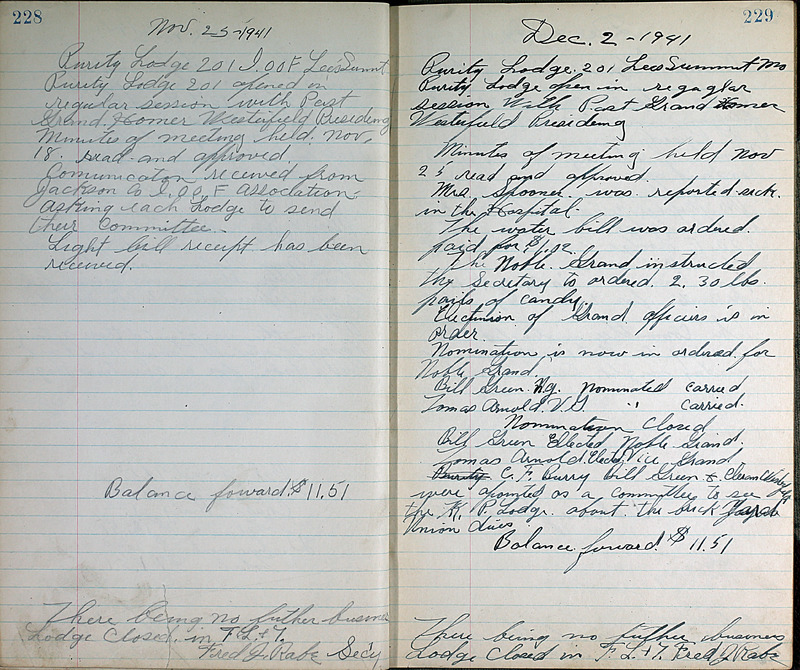 228
Nov. 25-1941
Purity Lodge 201 I.O.O.F Lee's Summit
Purity Lodge 201 opened in
regular session with Past
Grand, Homer Westerfield Presiding
Minutes of meeting held. Nov,
18. read. and approved.
Comunication received from
Jackson Co I.O.O.F Association.
asking each Lodge to send
their Committee.
Light bill receipt has been
received.
Balance foward $11.51
There being no futher business
Lodge Closed. in F.L.&T.
Fred J. Rabe Secy
229
Dec. 2-1941
Purity Lodge. 201 Lees Summit Mo
Purity Lodge open in regaglar
session With Past Grand Homer
Westerfield Presideng
Minutes of meeting held Nov
25 read and approved.
Mrs. Spooner. was reported sick.
in the Hospital.
The water bill was ordered.
paid for $1.12.
The Noble. Grand instructed
the Secretary to ordered. 2. 30 lbs.
pails of candy.
of Grand officiers is in
order.
Nomination is now in ordered for
Noble Grand.
Bill Green. N.g. nominated carried
Tomas Arnold. V.G. " carried.
Nomination Closed
Bill Green Elected Noble Grand.
Tomas Arnold. Elected Vice Grand
C. F. Burry Bill Green &
were aponted as a committee to see
the K. P. Lodge. about the brick
Union dues.
Balance foward. $11.51
There being no futher business
Lodge Closed in F. L. &T. Fred J Rabe